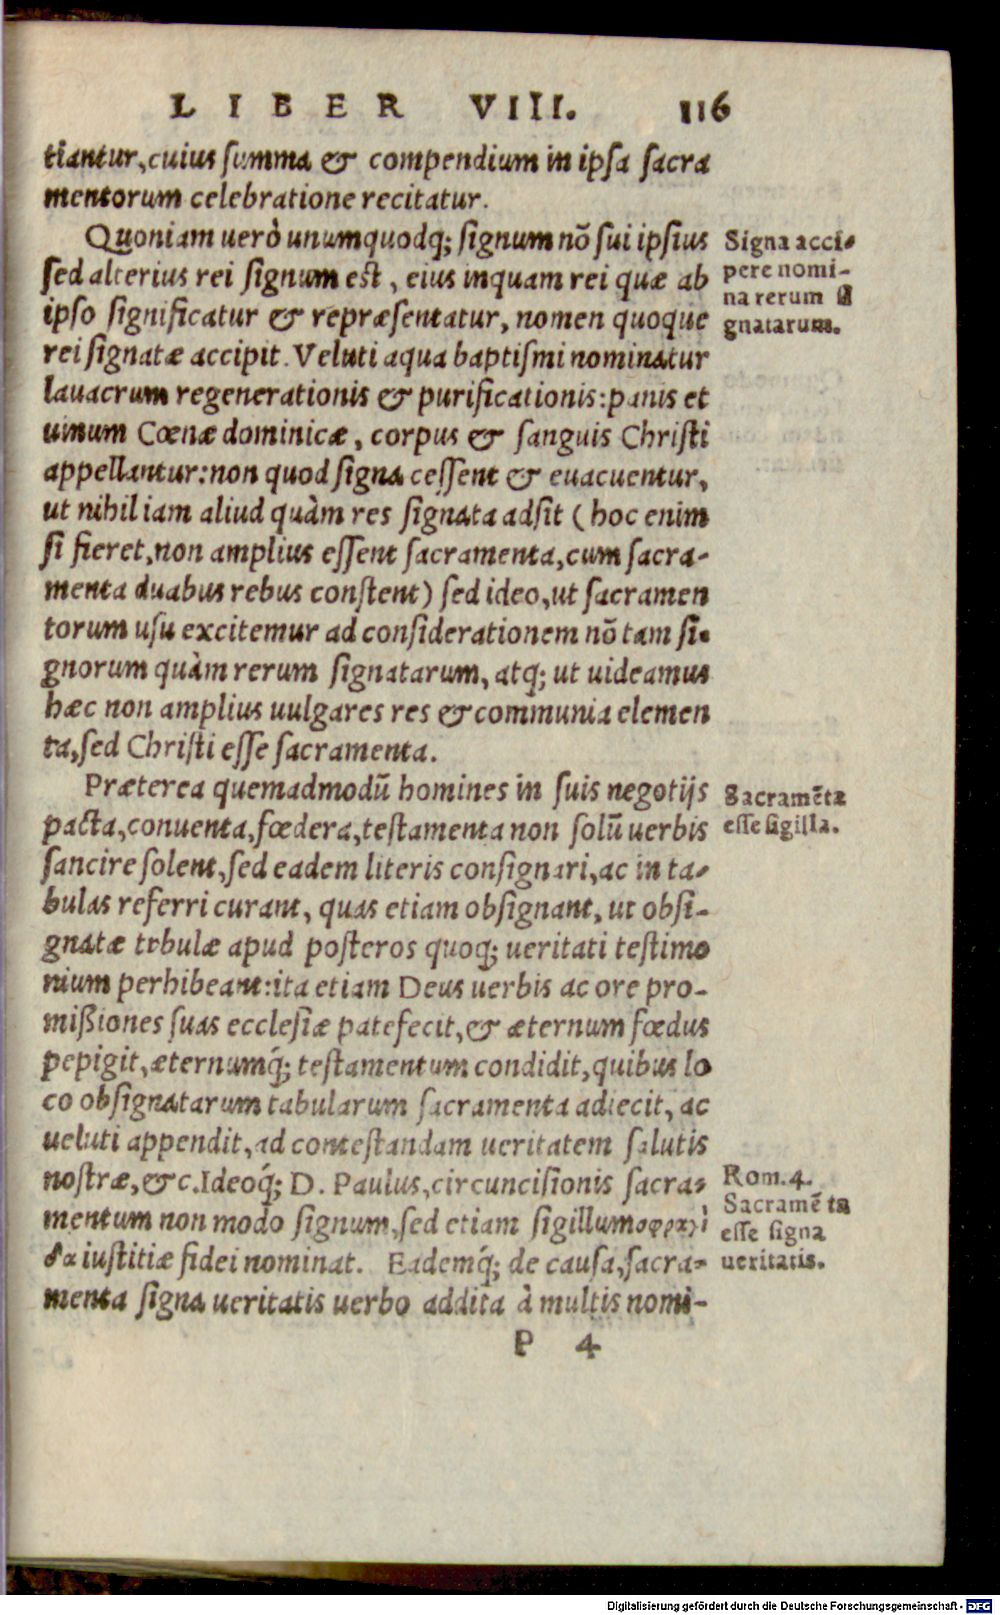 LIBER VIII. 116
tiantur, cuius summa & compendium in ipsa sacra
mentorum celebratione recitatur.
Quoniam uerò unumquodq; signum nō sui ipsius
sed alterius rei signum est, eius inquam rei quæ ab
ipso significatur & repræsentatur, nomen quoque
rei signatæ accipit. Veluti aqua baptismi nominatur
lauacrum regenerationis & purificationis: panis et
uinum Cœnæ dominicæ, corpus & sanguis Christi
appellantur: non quod signa cessent & euacuentur,
ut nihil iam aliud quàm res signata adsit (hoc enim
si fieret, non amplius essent sacramenta, cum sacra-
menta duabus rebus constent) sed ideo, ut sacramen
torum usu excitemur ad considerationem nō tam si-
gnorum quàm rerum signatarum, atq; ut uideamus
hæc non amplius uulgares res & communia elemen
ta, sed Christi esse sacramenta.
Signa acci-
pere nomi-
na rerum si
gnatarum.
Præterea quemadmodū homines in suis negotijs
pacta, conuenta, fœdera, testamenta non solū uerbis
sancire solent, sed eadem literis consignari, ac in ta-
bulas referri curant, quas etiam obsignant, ut obsi-
gnatæ tabulæ apud posteros quoq; ueritati testimo
nium perhibeant: ita etiam Deus uerbis ac ore pro-
mißiones suas ecclesiæ patefecit, & æternum fœdus
pepigit, æternumq́; testamentum condidit, quibus lo
co obsignatarum tabularum sacramenta adiecit, ac
ueluti appendit, ad contestandam ueritatem salutis
nostræ, &c. Ideoq́; D. Paulus, circuncisionis sacra-
mentum non modo signum, sed etiam sigillum σφραγὶ
δα iustitiæ fidei nominat. Eademq́; de causa, sacra-
menta signa ueritatis uerbo addita à multis nomi-
Sacramēta
esse sigilla.
Rom. 4.
Sacramē ta
esse signa
ueritatis.
P 4
Digitalisierung gefördert durch die Deutsche Forschungsgemeinschaft - DFG